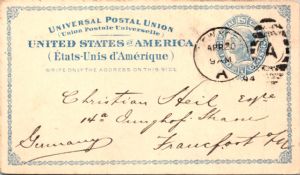 UNIVERSAL POSTAL UNION
(Union Postale Universelle)
UNITED STATES OF AMERICA.
(États-Unis d'Amérique)
WRITE ONLY THE ADDRESS ON THIS SIDE.
APR 20
94
A
A
Christian Heil Esqre
14a Junghof Strasse
Francfort o/M
Germany